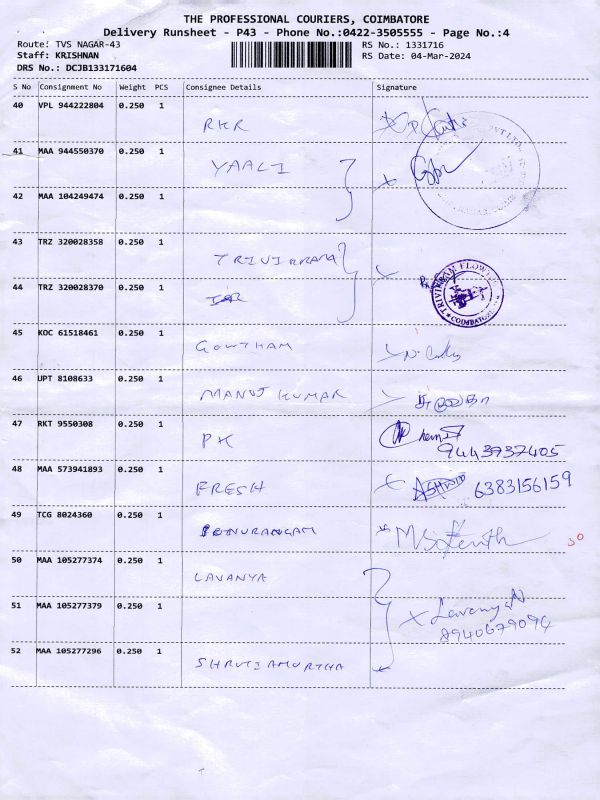 THE PROFESSIONAL COURIERS, COIMBATORE
Delivery Runsheet - P43 - Phone No.:0422-3505555 - Page No.:4
Route: TVS NAGAR-43 RS No.: 1331716
Staff: KRISHNAN RS Date: 04-Mar-2024
DRS No.: DCJB133171604
S No Consignment No Weight PCS Consignee Details Signature
40 VPL 944222804 0.250 1 RKR
41 MAA 944550370 0.250 1 YAALI
42 MAA 104249474 0.250 1
43 TRZ 320028358 0.250 1 TRIVIKRAMA
44 TRZ 320028370 0.250 1
TRIVIKRAM FLOWER
COIMBATORE
45 KOC 61518461 0.250 1 GOWTHAM
46 UPT 8108633 0.250 1 MANOJ KUMAR
47 RKT 9550308 0.250 1 PK
9443737405
48 MAA 573941893 0.250 1 FRESH ASHWIN 6383156159
49 TCG 8024360 0.250 1
50 MAA 105277374 0.250 1 LAVANYA
51 MAA 105277379 0.250 1 Lavanya N
8940679094
52 MAA 105277296 0.250 1 SHRUTIAMURTHA